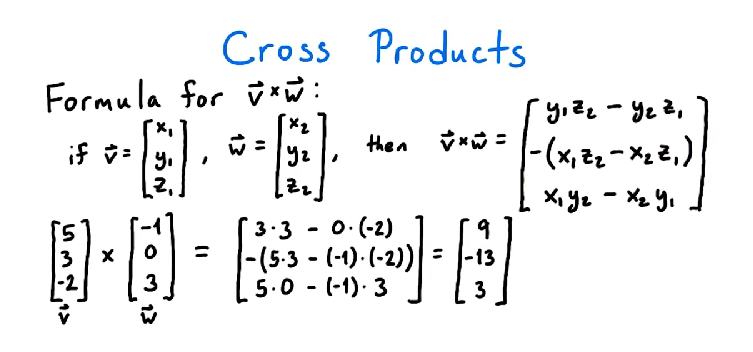 Cross Products
Formula for v⃗ × w⃗ :
if v⃗ = [x₁ y₁ z₁], w⃗ = [x₂ y₂ z₂], then v⃗ × w⃗ = [y₁z₂ - y₂z₁ -(x₁z₂ - x₂z₁) x₁y₂ - x₂y₁]
[5 3 -2] × [-1 0 3] = [3·3 - 0·(-2) -(5·3 - (-1)·(-2)) 5·0 - (-1)·3] = [9 -13 3]
v⃗ w⃗